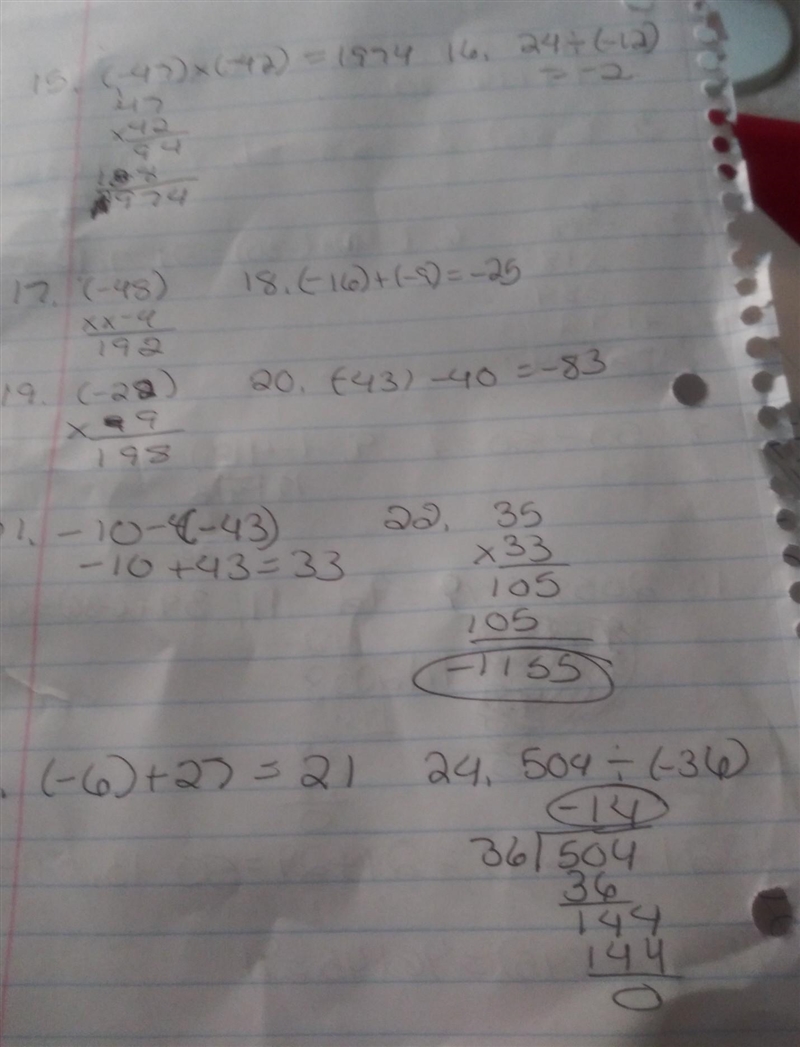 15. (-47)×(-42) = 1974 16. 24÷(-12)
= -2
47
×42
94
188
1974
17. (-48) 18. (-16)+(-9)=-25
××-4
192
19. (-22) 20. (-43) -40 = -83
× 9
198
1. -10-(-43) 22. 35
-10+43=33 ×33
105
105
-1155
. (-6)+27 = 21 24. 504÷(-36)
-14
36 504
36
144
144
0